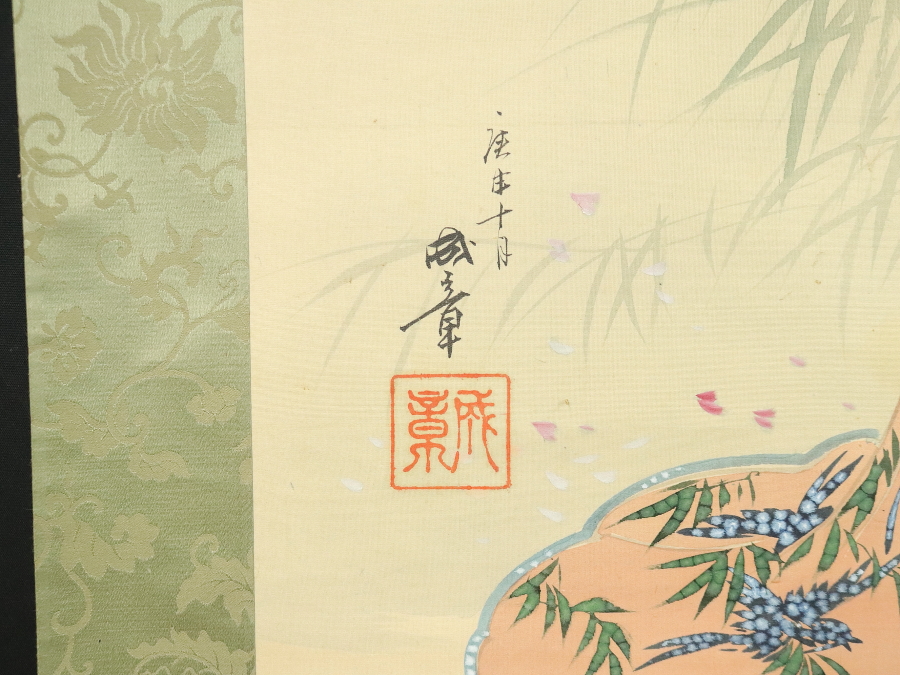 庚申十月
成章
成章